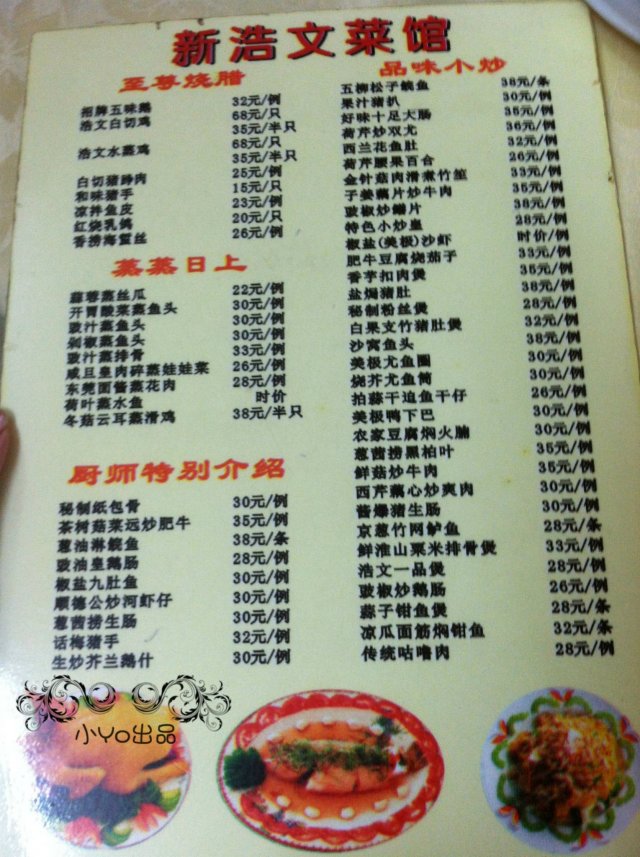 新浩文菜馆
至尊烧腊
招牌五味鹅 32元/例
浩文白切鸡 68元/只
35元/半只
浩文水蒸鸡 68元/只
35元/半只
白切猪踭肉 25元/例
和味猪手 15元/只
凉拌鱼皮 23元/例
红烧乳鸽 20元/只
香捞海蜇丝 26元/例
蒸蒸日上
蒜蓉蒸丝瓜 22元/例
开胃酸菜蒸鱼头 30元/例
豉汁蒸鱼头 30元/例
剁椒蒸鱼头 30元/例
豉汁蒸排骨 33元/例
咸旦皇肉碎蒸娃娃菜 26元/例
东莞面酱蒸花肉 28元/例
荷叶蒸水鱼 时价
冬菇云耳蒸滑鸡 38元/半只
厨师特别介绍
秘制纸包骨 30元/例
茶树菇菜远炒肥牛 35元/例
葱油淋鲩鱼 38元/条
豉油皇鹅肠 28元/例
椒盐九肚鱼 30元/例
顺德公炒河虾仔 30元/例
葱茜捞生肠 30元/例
话梅猪手 32元/例
生炒芥兰鹅什 30元/例
品味小炒
五柳松子鲩鱼 38元/条
果汁猪扒 30元/例
好味十足大肠 35元/例
荷芹炒双尤 36元/例
西兰花鱼肚 32元/例
荷芹腰果百合 26元/例
金针菇肉滑煮竹笙 33元/例
子姜藕片炒牛肉 35元/例
豉椒炒鳝片 38元/例
特色小炒皇 28元/例
椒盐(美极)沙虾 时价/例
肥牛豆腐烧茄子 33元/例
香芋扣肉煲 35元/例
盐焗猪肚 38元/例
秘制粉丝煲 28元/例
白果支竹猪肚煲 32元/例
沙窝鱼头 38元/例
美极尤鱼圈 30元/例
烧芥尤鱼筒 30元/例
拍蒜干迫鱼干仔 26元/例
美极鸭下巴 30元/例
农家豆腐焖火腩 30元/例
葱茜捞黑柏叶 35元/例
鲜菇炒牛肉 30元/例
西芹藕心炒爽肉 30元/例
酱爆猪生肠 30元/例
京葱竹网鲈鱼 28元/条
鲜淮山粟米排骨煲 33元/例
浩文一品煲 28元/例
豉椒炒鹅肠 26元/例
蒜子钳鱼煲 28元/条
凉瓜面筋焖钳鱼 32元/条
传统咕噜肉 28元/例
小YO出品